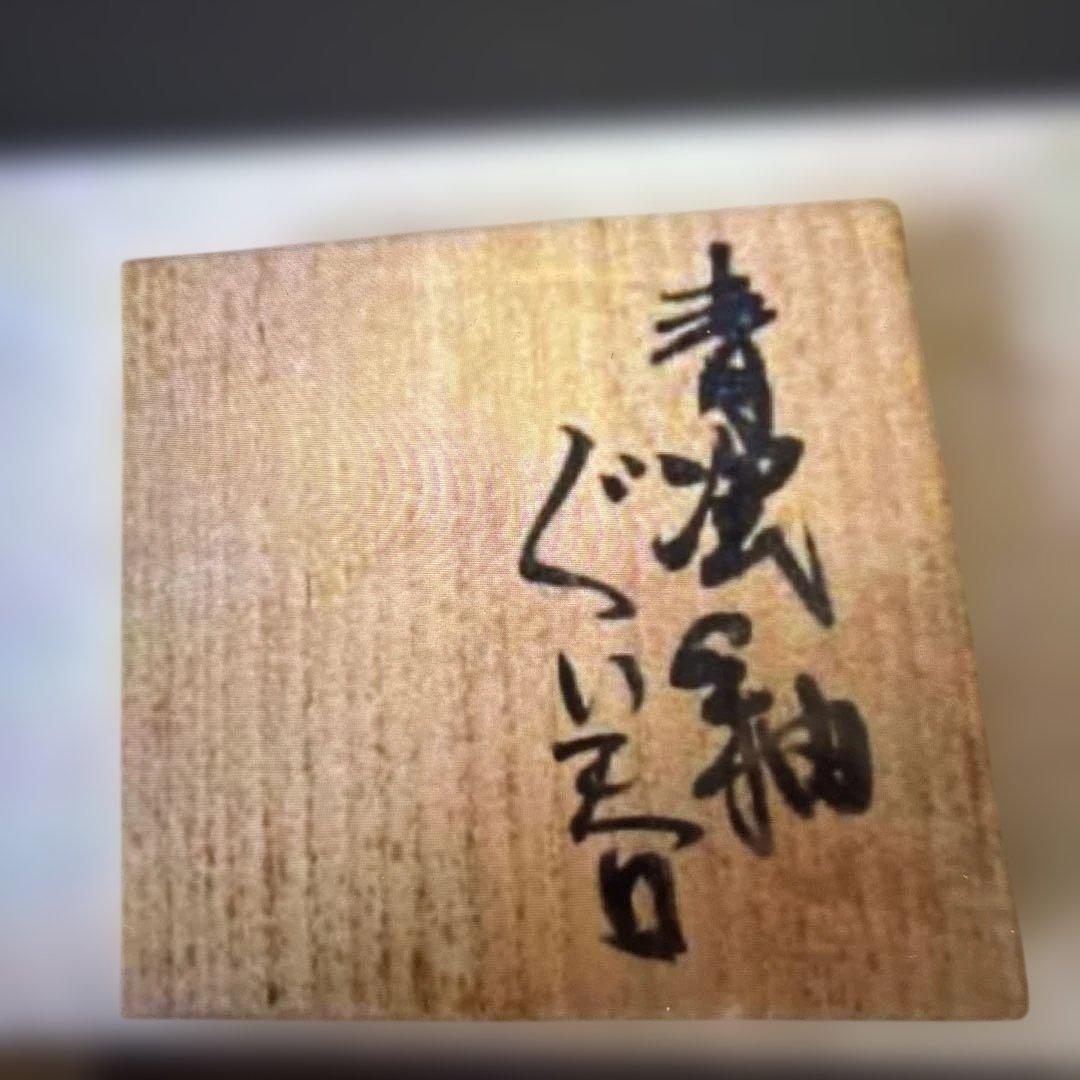 青瓷釉
ぐい呑